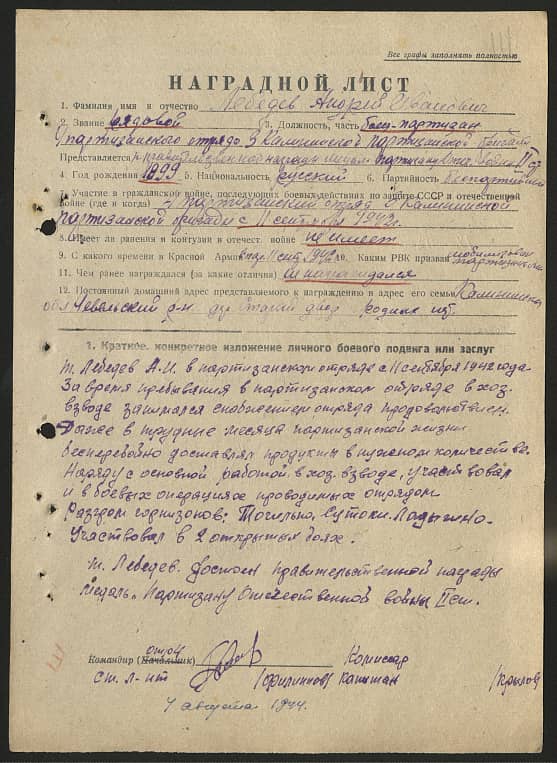 Все графы заполнять полностью
НАГРАДНОЙ ЛИСТ
1. Фамилия имя и отчество Лебедев Андрей Иванович
2. Звание рядовой 3. Должность, часть боец-партизан
партизанского отряда 3 Калининской партизанской бригады
Представляется к правительственной награде медаль Партизану Отеч. войны II ст.
4. Год рождения 1899 5. Национальность русский 6. Партийность беспартийный
7. Участие в гражданской войне, последующих боевых действиях по защите СССР и отечественной
войне (где и когда) партизанский отряд 3 Калининской
партизанской бригады с 11 сентября 1942г.
8. Имеет ли ранения и контузии в отечест. войне не имеет
9. С какого времени в Красной Армии с 11 сент. 1942 10. Каким РВК призван мобилизован
партизанами
11. Чем ранее награждался (за какие отличия) не награждался
12. Постоянный домашний адрес представляемого к награждению и адрес его семьи Калининская
обл р-н дер. Старый двор
1. Краткое, конкретное изложение личного боевого подвига или заслуг
т. Лебедев А.И. в партизанском отряде с 11 сентября 1942 года.
За время пребывания в партизанском отряде в хоз.
взводе занимался снабжением отряда продовольствием.
Даже в трудные месяца партизанской жизни
бесперебойно доставлял продукты в нужном количестве.
Наряду с основной работой в хоз. взводе, участвовал
и в боевых операциях проводимых отрядом
Разгром гарнизонов: Точильно, Сутоки, Ладыжно.
Участвовал в 2 открытых боях.
т. Лебедев. достоин правительственной награды
медаль „Партизану Отечественной войны II ст.
отряд
Командир (Начальник) Комиссар
ст. л-нт /Филиппов/ капитан /Крылов/
4 августа 1944.